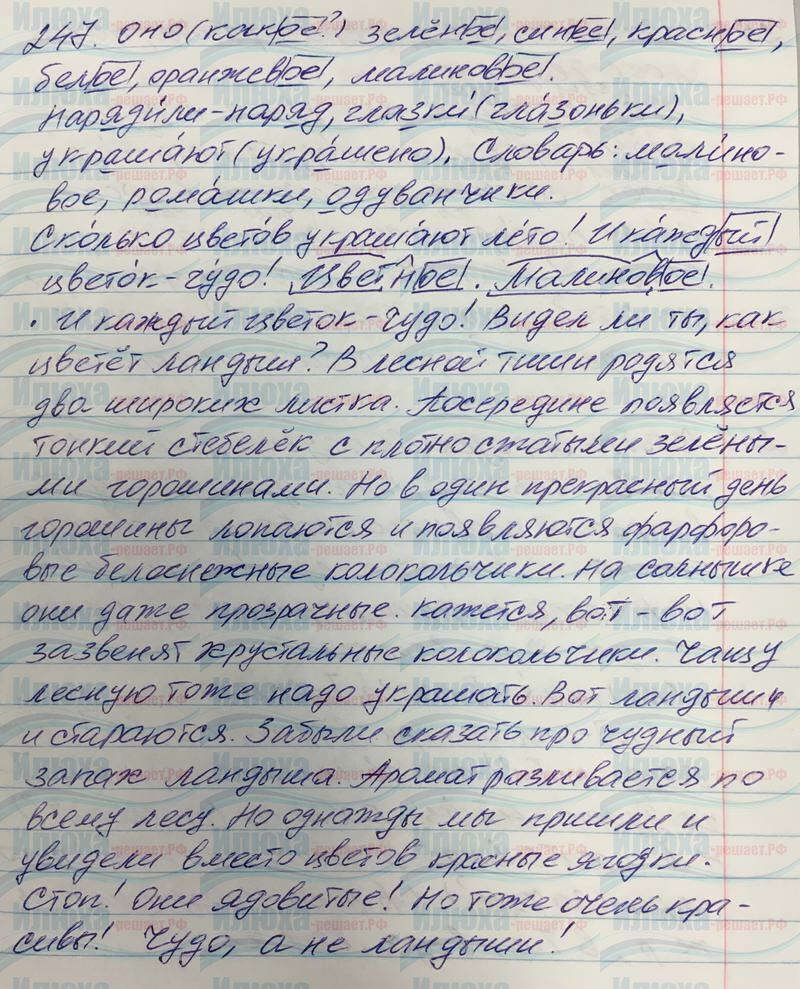 247. Оно (какое?) зелёное, синее, красное,
белое, оранжевое, малиновое.
Нарядили-наряд, глазки (глазоньки),
украшают (украшено). Словарь: малино-
вое, ромашки, одуванчики.
Сколько цветов украшают лето! И каждый
цветок-чудо! Цветное. Малиновое.
. И каждый цветок-чудо! Видел ли ты, как
цветёт ландыш? В лесной тиши родятся
два широких листка. Посередине появляется
тонкий стебелёк с плотно сжатыми зелёны-
ми горошинами. Но в один прекрасный день
горошины лопаются и появляются фарфоро-
вые белоснежные колокольчики. На солнышке
они даже прозрачные. Кажется, вот-вот
зазвенят хрустальные колокольчики. Чащу
лесную тоже надо украшать. Вот ландыши
и стараются. Забыли сказать про чудный
запах ландыша. Аромат разливается по
всему лесу. Но однажды мы пришли и
увидели вместо цветов красные ягодки.
Стоп! Они ядовитые! Но тоже очень кра-
сивы! Чудо, а не ландыши!
Илюха-решает.РФ